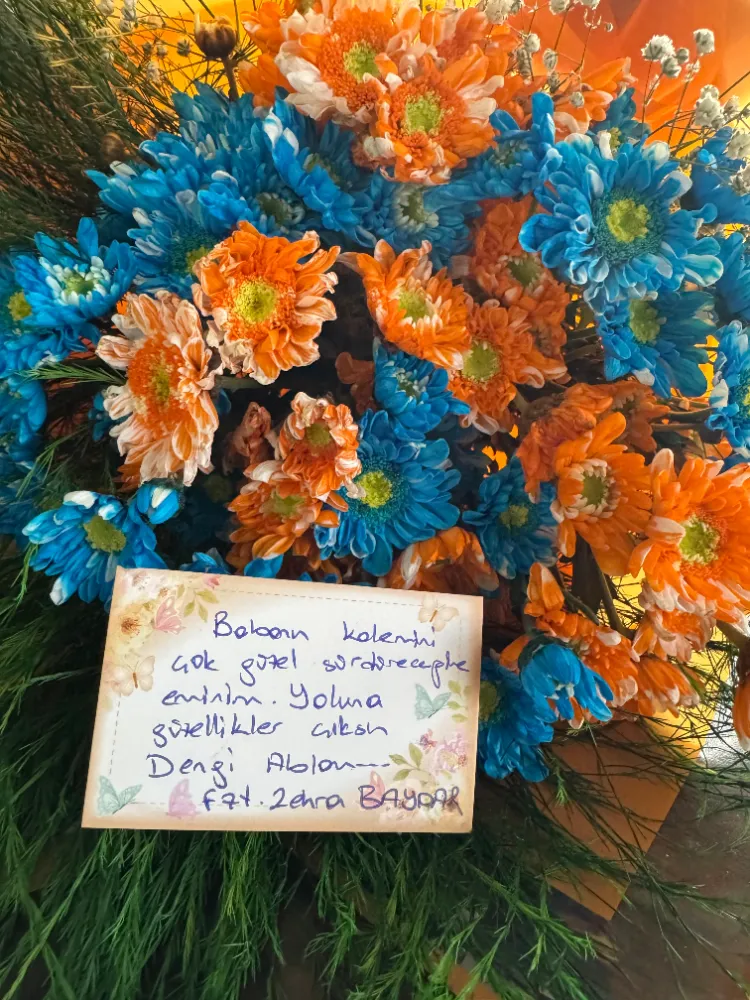 Babanın kalemini
çok güzel sürdüreceğine
eminim. Yoluna
güzellikler çıksın
Dengi Ablan---
Fzt. Zehra BAYDAR